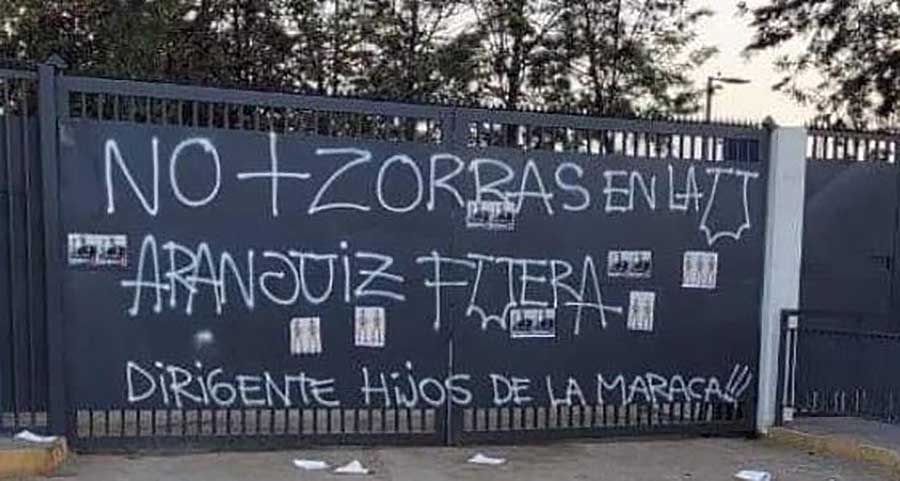 NO + ZORRAS EN LA U
ARANGUIZ FUERA
DIRIGENTE HIJOS DE LA MARACA!!!